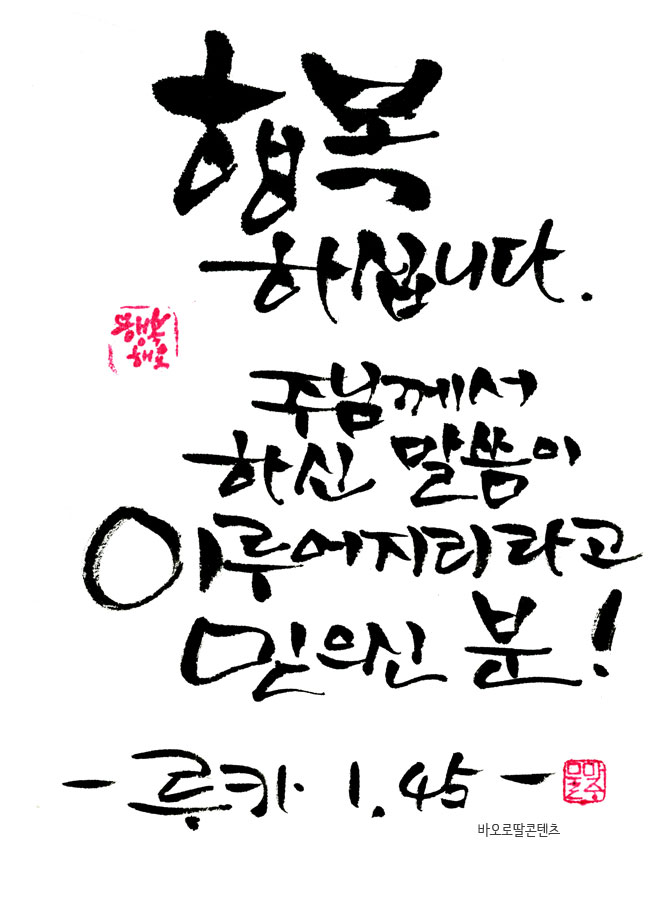 행복
하십니다.
행복
해요
주님께서
하신 말씀이
이루어지리라고
믿으신 분!
- 루카 1.45 -
마중물
바오로딸콘텐츠